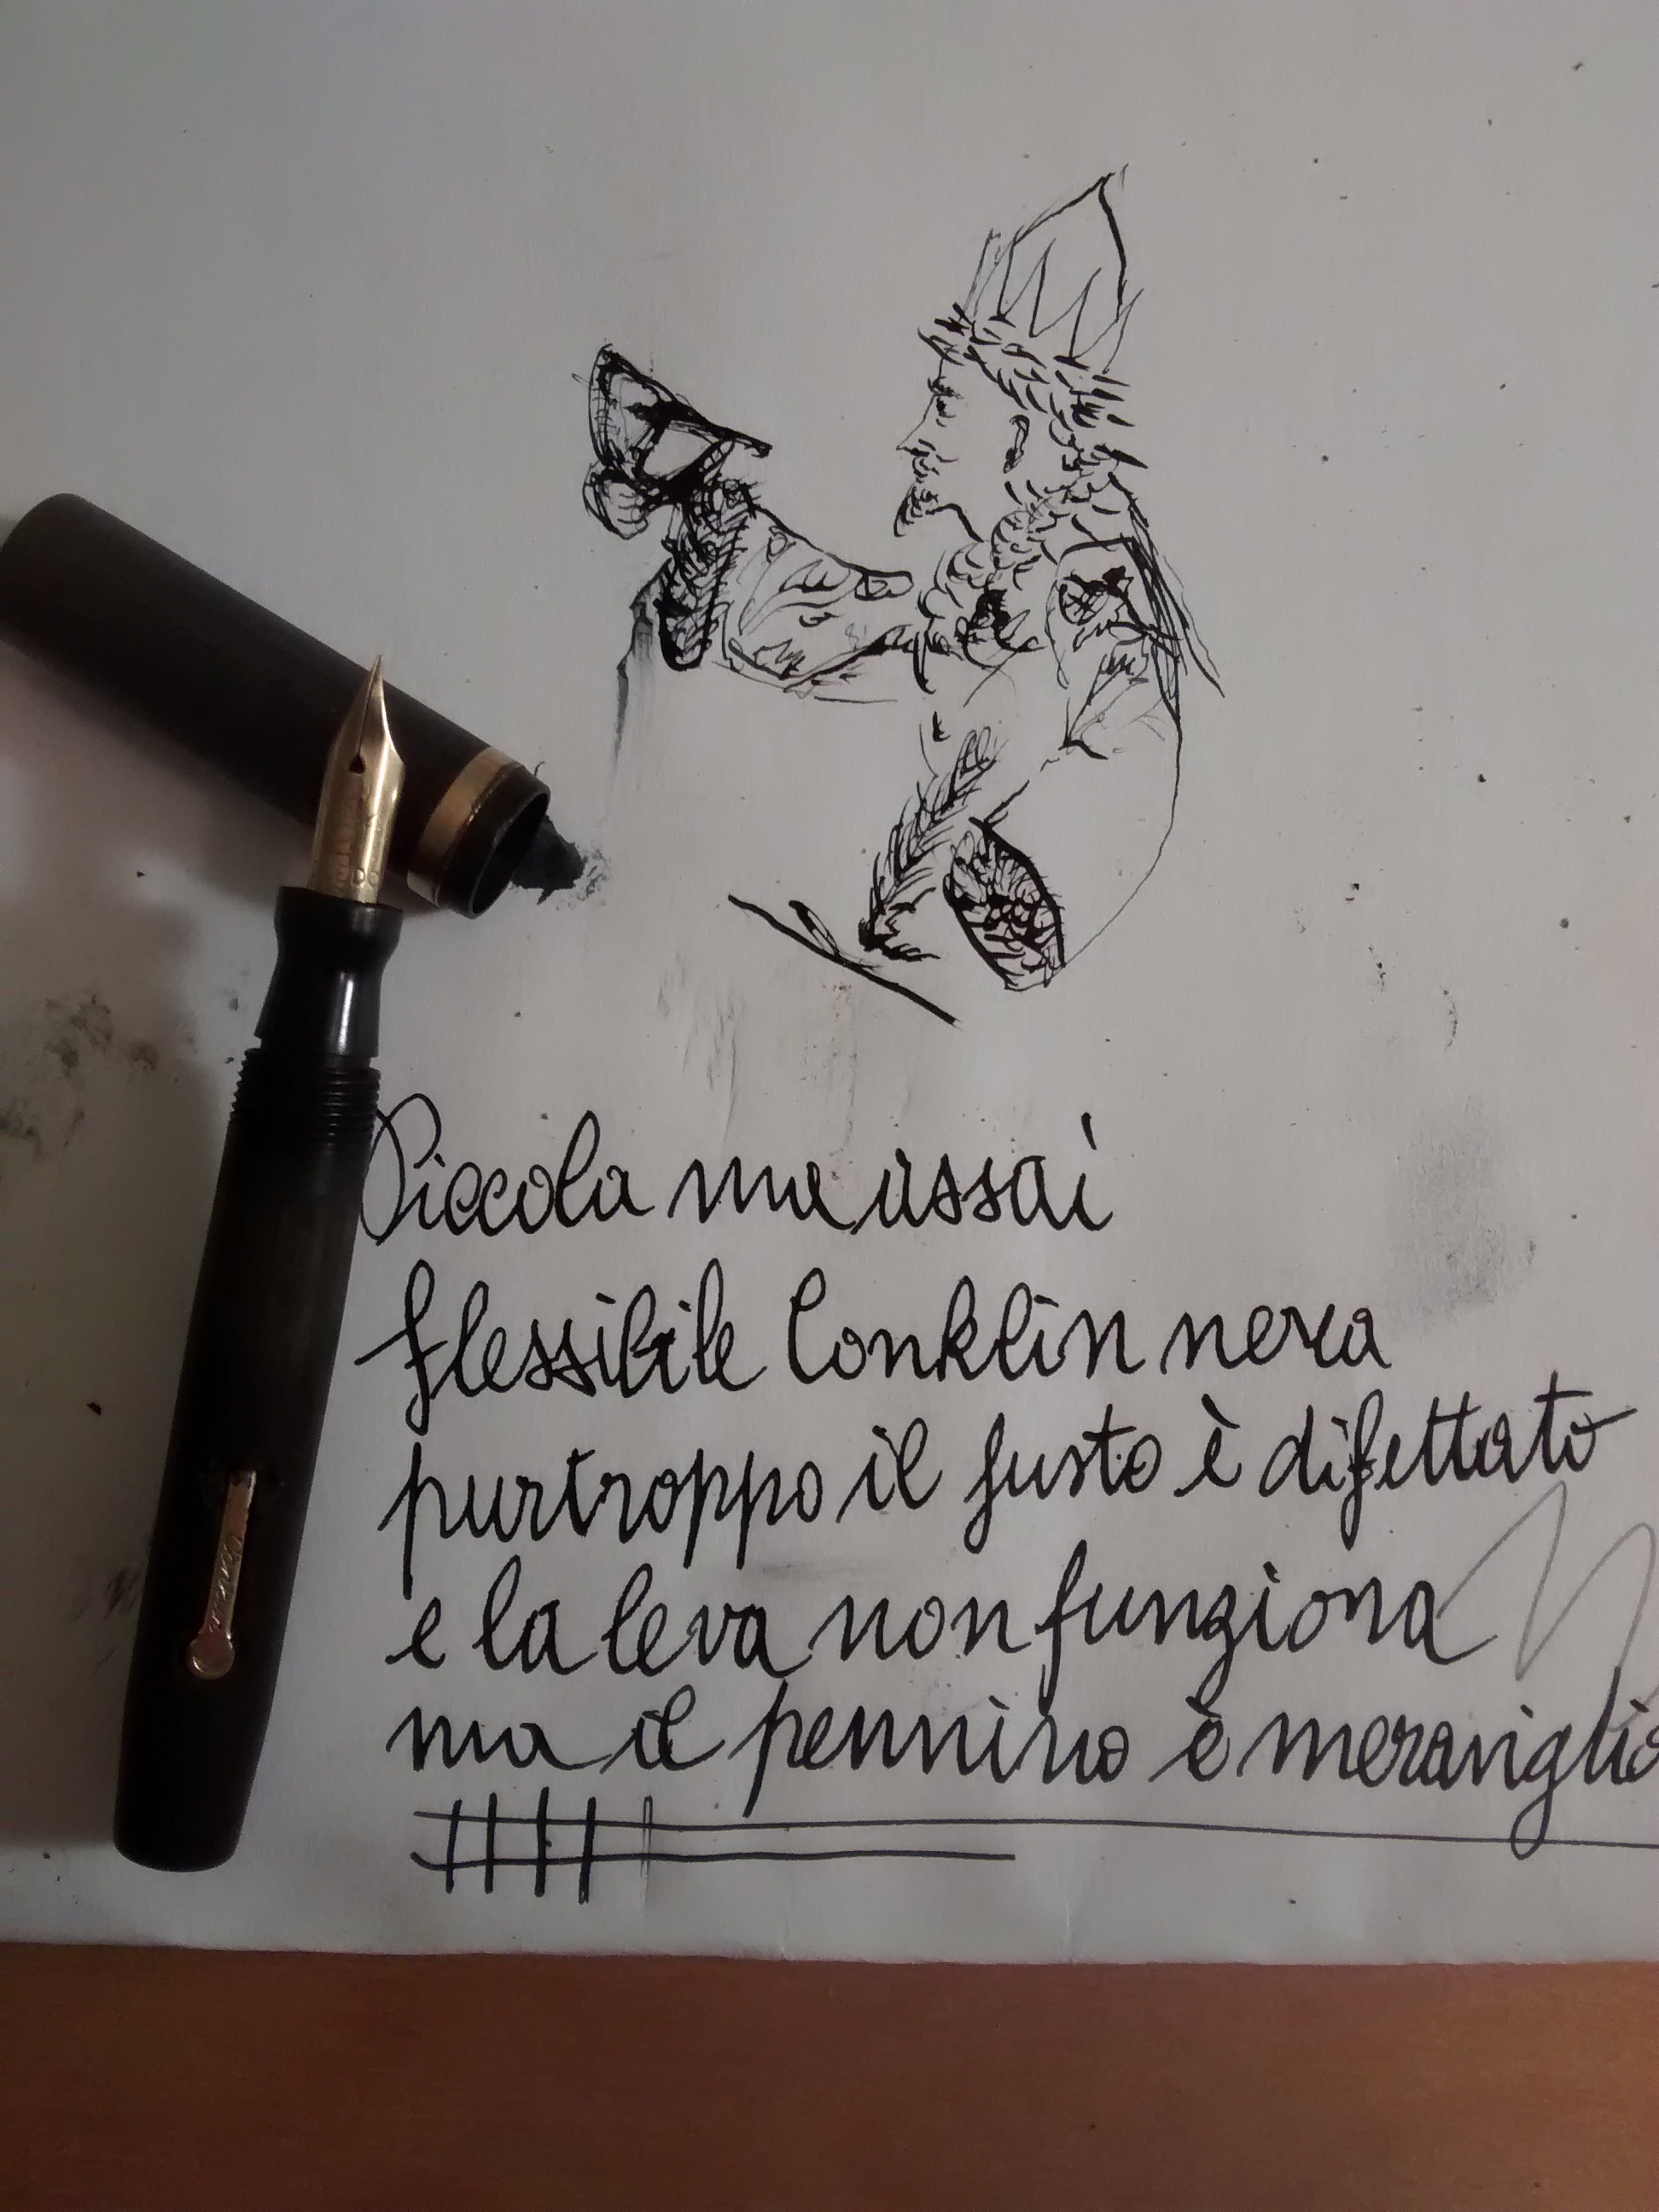 Piccola ma assai
flessibile Conklin nera
purtroppo il fusto è difettato
e la leva non funziona
ma il pennino è meraviglio